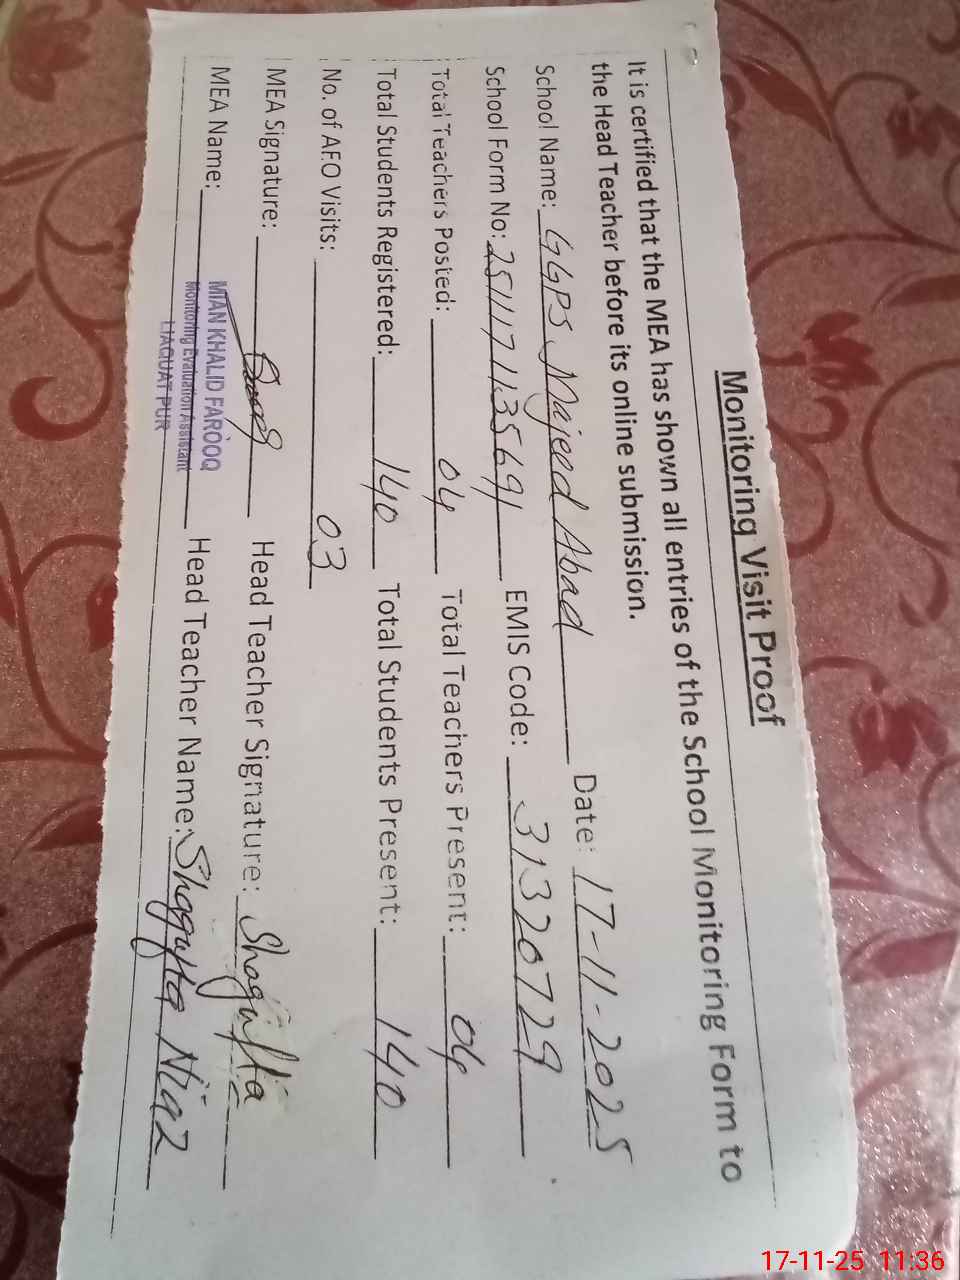 Monitoring Visit Proof
It is certified that the MEA has shown all entries of the School Monitoring Form to
the Head Teacher before its online submission.
School Name: GGPS Majeed Abad Date: 17-11-2025
School Form No: 2511171135691 EMIS Code: 31320729
Total Teachers Posted: 04 Total Teachers Present: 04
Total Students Registered: 140 Total Students Present: 140
No. of AEO Visits: 03
MEA Signature: Head Teacher Signature: Shagufta
MEA Name: MIAN KHALID FAROOQ Head Teacher Name: Shagufta Niaz
Monitoring Evaluation Assistant
LIAQUAT PUR
17-11-25 11:36